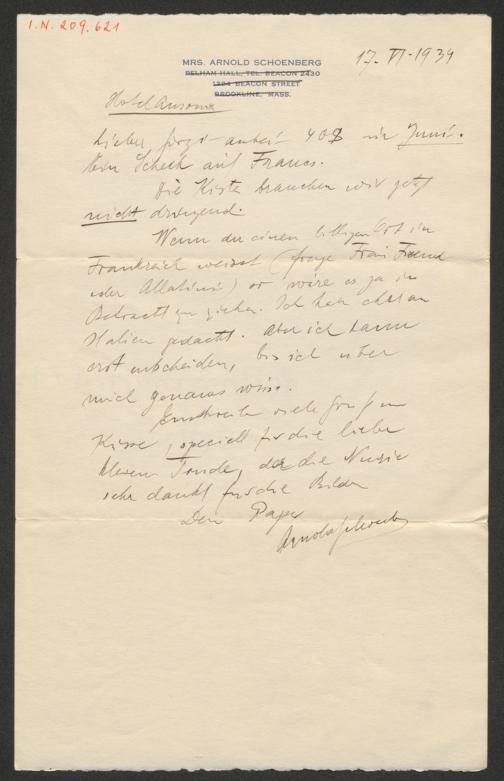 I.N. 209.621
17. VI. 1934
MRS. ARNOLD SCHOENBERG
PELHAM HALL, TEL. BEACON 2430
1284 BEACON STREET
BROOKLINE, MASS.
Hotel Ansonia
Lieber Görgi - anbei 40$ für Juni.
Ein Scheck auf Francs.
Die Kiste brauchen wir jetzt
nicht dringend.
Wenn du einen billigen Ort in
Frankreich weisst (frage Frau Freund
oder Allatini) so wäre es ja in
Betracht zu ziehen. Ich habe eher an
Italien gedacht. Aber ich kann
erst entscheiden, bis ich über
mich genaues weiss.
viele Grüsse
Küsse, speciell für die liebe
kleine die Nurie
sehr dankt für die Bilder
Dein Papa
Arnold Schoenberg